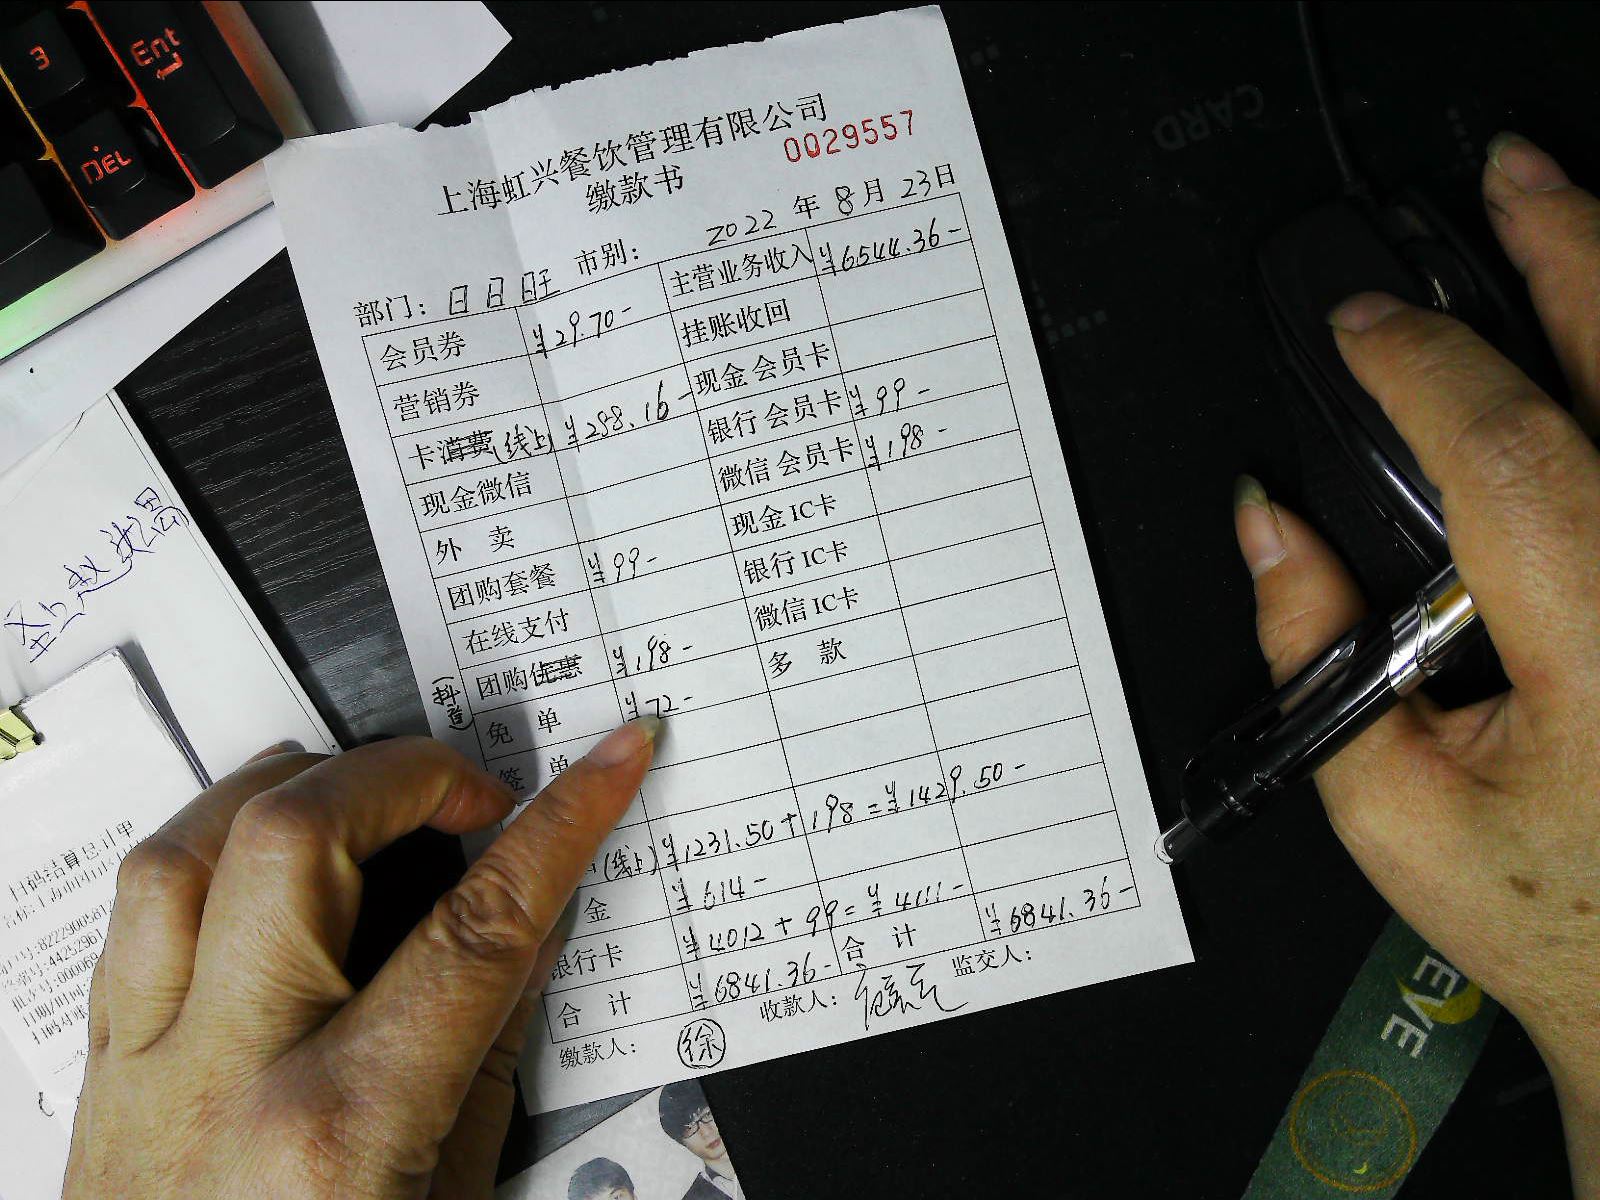 3
Ent
DEL
CARD
上海虹兴餐饮管理有限公司
0029557
缴款书
2022 年 8 月 23 日
部门: 日日旺 市别:
会员券 ¥29.70- 主营业务收入 ¥6544.36-
营销券 挂账收回
卡消费(线上) ¥288.16- 现金会员卡
现金微信 银行会员卡 ¥99-
外 卖 微信会员卡 ¥198-
团购套餐 ¥99- 现金IC卡
在线支付 银行IC卡
团购优惠 ¥198- 微信IC卡
(抖音)
免 单 ¥72- 多 款
签 单
(线上) ¥1231.50+198=¥1429.50-
金 ¥614-
银行卡 ¥4012+99=¥4111-
合 计 ¥6841.36- 合 计 ¥6841.36-
缴款人: 徐 收款人: 监交人:
扫码结算总计单
EVE